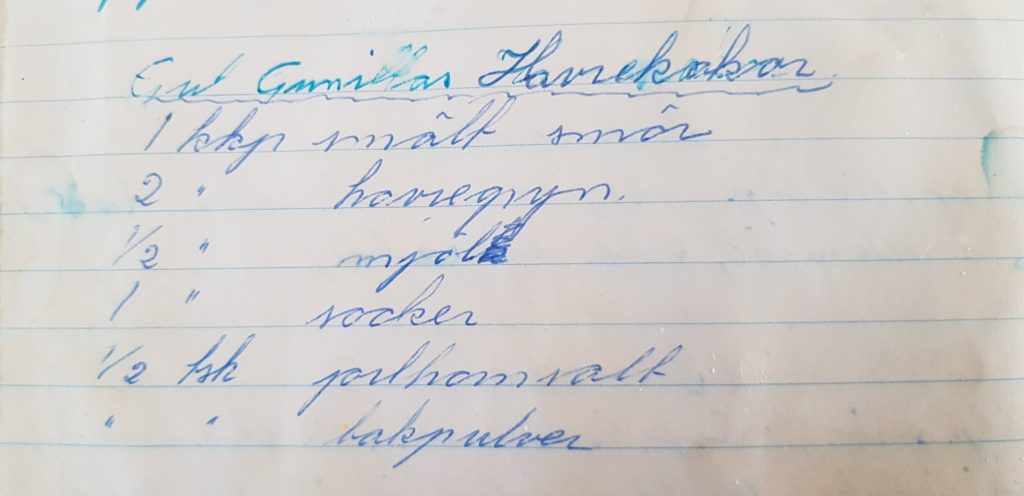 Gul Gunillas Havrekakor
1 kkp smält smör
2 " havregryn.
1/2 " mjöl
1 " socker
1/2 tsk jorthornsalt
" " bakpulver